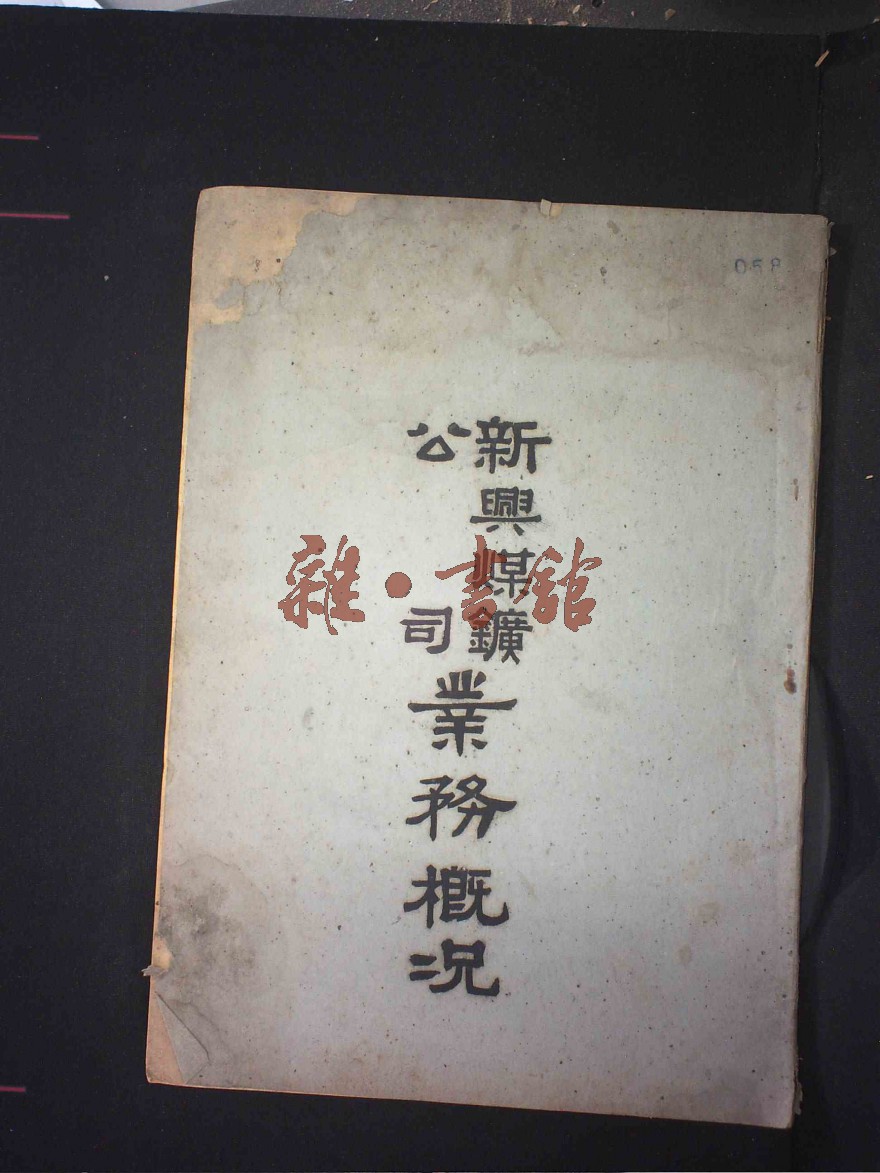 058
新興煤鑛
公司
業務概况
雜·書館